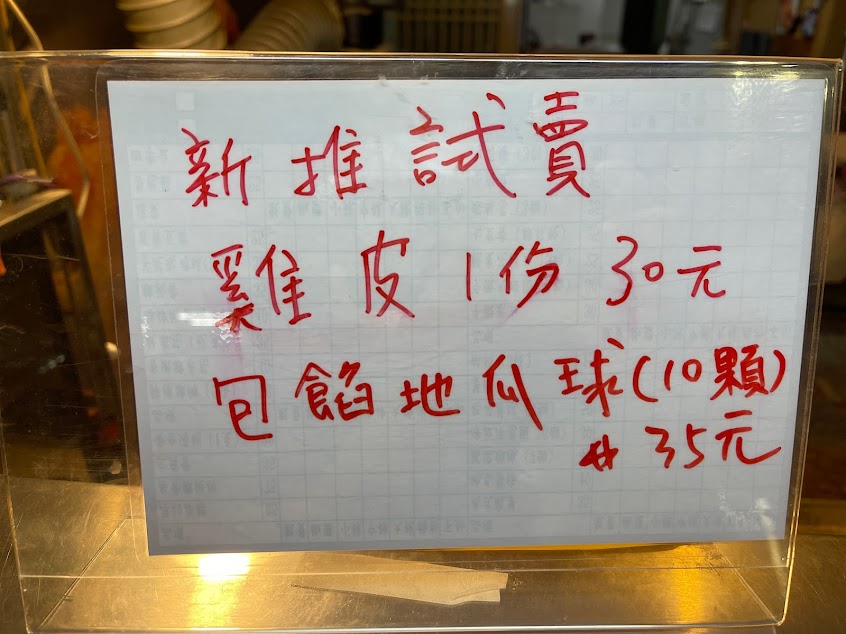 新推試賣
雞皮1份30元
包餡地瓜球(10顆)
#35元